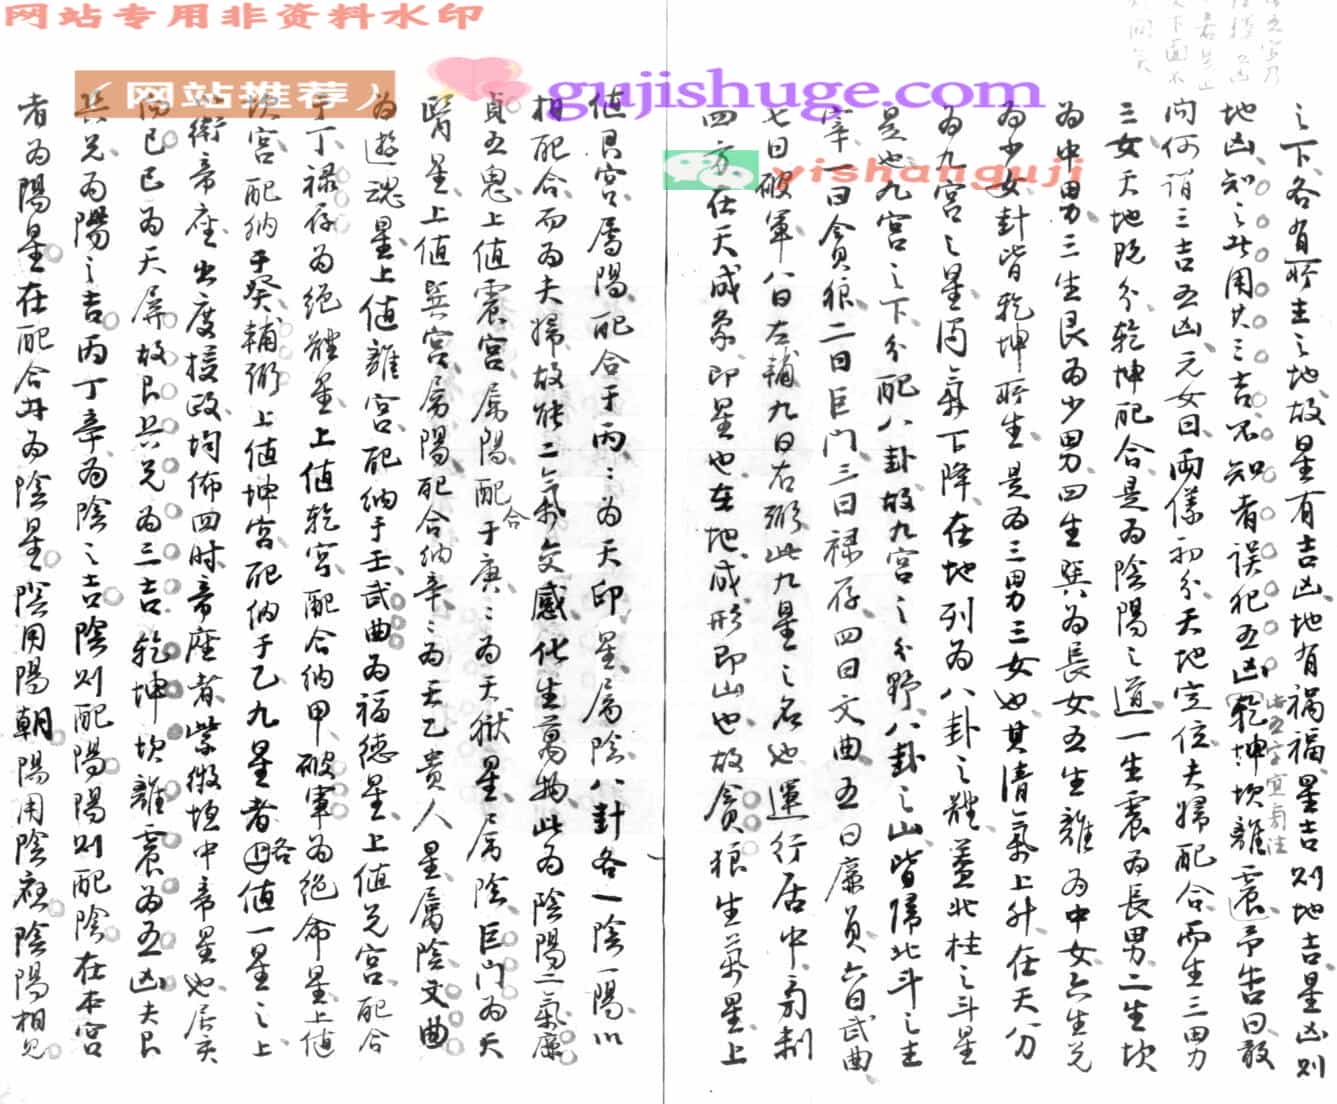 网站专用非资料水印
（网站推荐）
gujishuge.com
yishanguji
之下各有所主之地故星有吉凶地有禍福星吉則地吉星凶則
地凶知之此用其三吉不知者誤犯五凶乾坤坎離震予告曰敢
此五字宜旁注
问何謂三吉五凶元女曰兩儀初分天地定位夫婦配合而生三男
三女天地既分乾坤配合是为陰陽之道一生震为長男二生坎
为中男三生艮为少男四生巽为長女五生離为中女六生兑
为少女卦皆乾坤所生是为三男三女也其清氣上升在天分
为九宫之星濁氣下降在地列为八卦之體蓋北桂之斗星
是也九宫之下分配八卦故九宫之分野八卦之山皆歸北斗之主
宰一曰貪狼二曰巨门三曰禄存四曰文曲五曰廉貞六曰武曲
七曰破軍八曰左輔九曰右弼此九星之名也運行居中旁制
四方在天成象即星也在地成形即山也故貪狼生氣星上
值艮宫屬陽配合于丙丙为天印星属陰八卦各一陰一陽以
相配合而为夫婦故能二氣交感化生萬物此为陰陽二氣廉
貞五鬼上值震宫属陽配合于庚庚为天獄星属陰巨门为天
醫星上值巽宫属陽配合纳辛辛为天乙貴人星屬陰文曲
为遊魂星上值離宫配纳于壬武曲为福德星上值兑宫配合
于丁禄存为绝體星上值乾宫配合纳甲破軍为绝命星上值
坎宫配纳于癸輔弼上值坤宫配纳于乙九星者各上值一星之上
衛帝座出度授政均佈四时帝座者紫微垣中帝星也居亥
向巳巳为天屏故艮巽兑为三吉乾坤坎離震为五凶夫艮
巽兑为陽之吉丙丁辛为陰之吉陰則配陽陽則配陰在本宫
者为陽星在配合者为陰星陰用陽朝陽用陰應陰陽相見